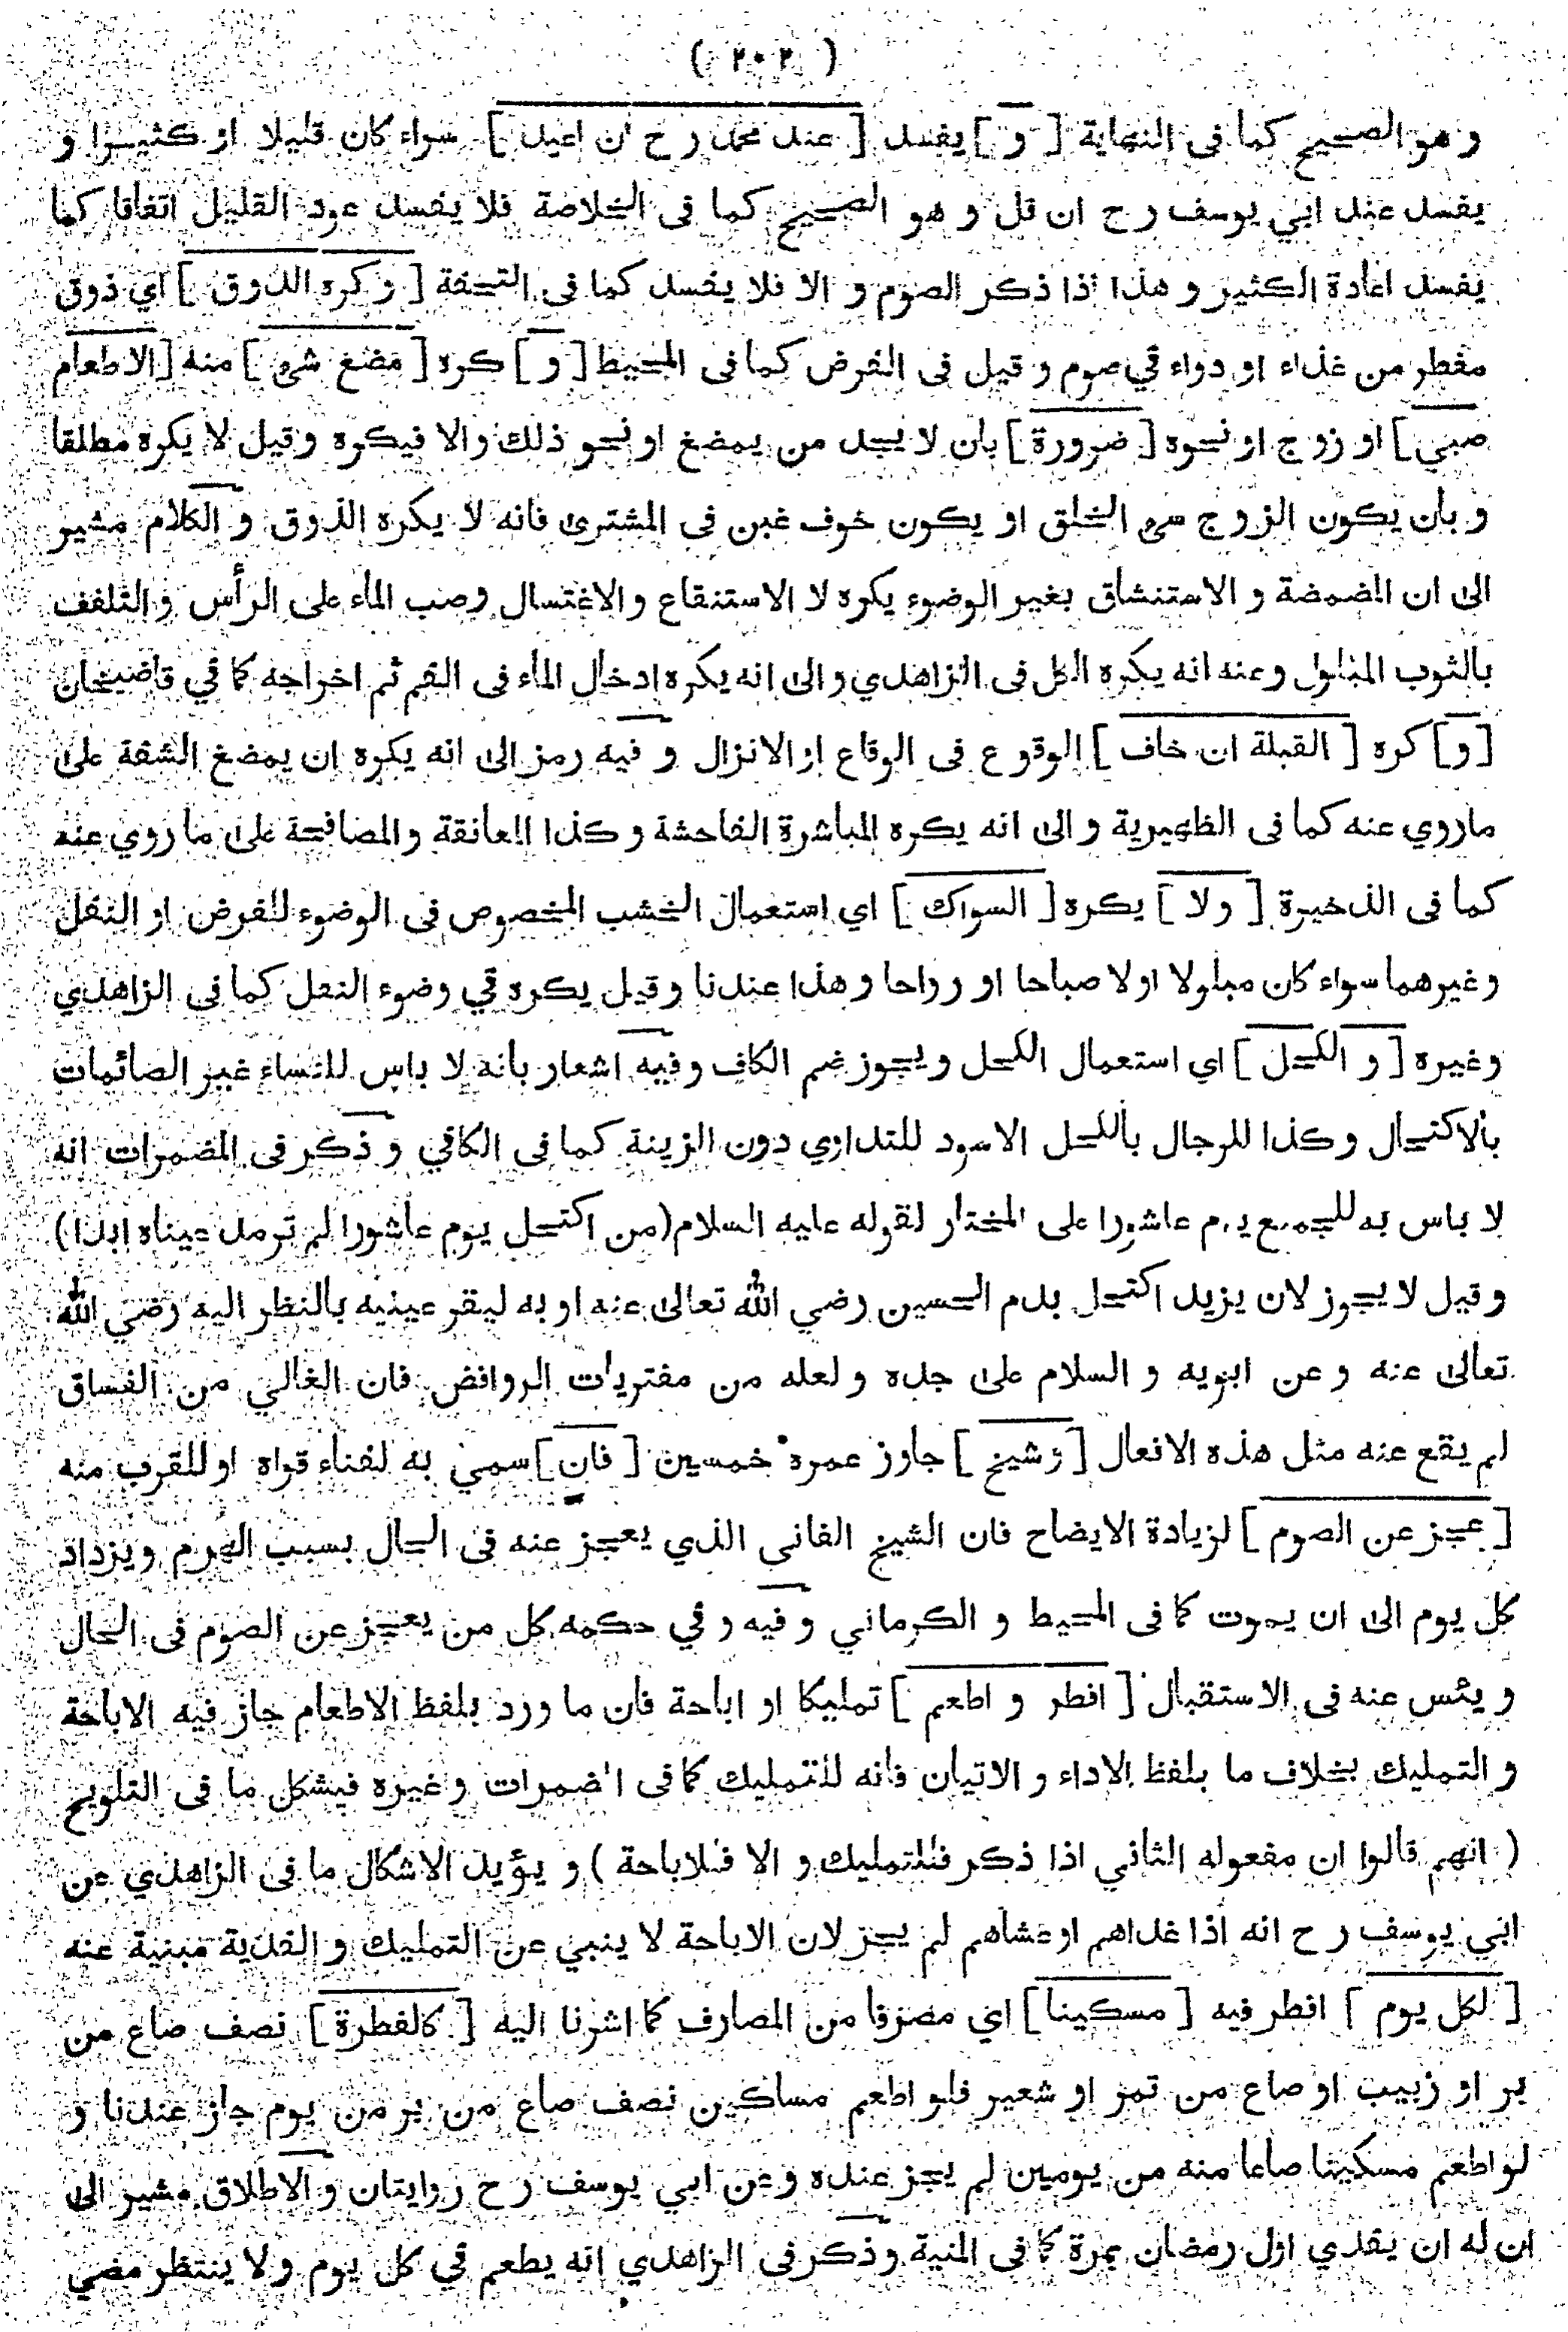 ( ٢٠٢ )
و هو الصحيح كما فى النهاية [ و ] يفسد [ عند محمد رح ان اعيد ] سواء كان قليلا او كثيرا و
يفسد عند ابي يوسف رح ان قل و هو الصحيح كما فى الخلاصة فلا يفسد عود القليل اتفاقا كما
يفسد اعادة الكثير و هذا اذا ذكر الصوم و الا فلا يفسد كما فى التحفة [ و كره الذوق ] اي ذوق
مفطر من غذاء او دواء في صوم و قيل فى الفرض كما فى المحيط [ و ] كره [ مضغ شئ ] منه [ الاطعام
صبي ] او زوج او نحوه [ ضرورة ] بان لا يجد من يمضغ او نحو ذلك والا فيكره وقيل لا يكره مطلقا
و بان يكون الزوج سئ الخلق او يكون خوف غبن فى المشترى فانه لا يكره الذوق و الكلام مشير
الى ان المضمضة و الاستنشاق بغير الوضوء يكره لا الاستنقاع والاغتسال وصب الماء على الرأس والتلفف
بالثوب المبلول وعنه انه يكره الكل فى الزاهدي و الى انه يكره ادخال الماء فى الفم ثم اخراجه كما في قاضيخان
[ و ] كره [ القبلة ان خاف ] الوقوع فى الوقاع او الانزال و فيه رمز الى انه يكره ان يمضغ الشفة على
ماروي عنه كما فى الظهيرية و الى انه يكره المباشرة الفاحشة و كذا المعانقة والمصافحة على ما روي عنه
كما فى الذخيرة [ و لا ] يكره [ السواك ] اي استعمال الخشب المخصوص فى الوضوء للفرض او النفل
وغيرهما سواء كان مبلولا اولا صباحا او رواحا و هذا عندنا و قيل يكره في وضوء النفل كما فى الزاهدي
وغيره [ و الكحل ] اي استعمال الكحل و يجوز ضم الكاف وفيه اشعار بانه لا باس للنساء غير الصائمات
بالاكتحال وكذا للرجال بالكحل الاسود للتداوي دون الزينة كما فى الكافي و ذكر فى المضمرات انه
لا باس به للجميع يوم عاشورا على المختار لقوله عليه السلام (من اكتحل يوم عاشورا لم ترمد عيناه ابدا)
و قيل لا يجوز لان يزيد اكتحل بدم الحسين رضي الله تعالى عنه او به ليقر عينيه بالنظر اليه رضي الله
تعالى عنه و عن ابويه و السلام على جده و لعله من مفتريات الروافض فان الغالي من الفساق
لم يقع عنه مثل هذه الافعال [ و شيخ ] جاوز عمره خمسين [ فان ] سمي به لفناء قواه او للقرب منه
[ عجز عن الصوم ] لزيادة الايضاح فان الشيخ الفانى الذي يعجز عنه فى الحال بسبب الهرم ويزداد
كل يوم الى ان يموت كما فى المحيط و الكرماني و فيه و في حكمه كل من يعجز عن الصوم فى الحال
و يئس عنه فى الاستقبال [ افطر و اطعم ] تمليكا او اباحة فان ما ورد بلفظ الاطعام جاز فيه الاباحة
و التمليك بخلاف ما بلفظ الاداء و الاتيان فانه للتمليك كما فى المضمرات وغيره فيشكل ما فى التلويح
( انهم قالوا ان مفعوله الثاني اذا ذكر فللتمليك و الا فللاباحة ) و يؤيد الاشكال ما فى الزاهدي عن
ابي يوسف رح انه اذا غداهم او عشاهم لم يجز لان الاباحة لا ينبي عن التمليك و الفدية مبنية عنه
[ لكل يوم ] افطر فيه [ مسكينا ] اي مصرفا من المصارف كما اشرنا اليه [ كالفطرة ] نصف صاع من
بر او زبيب او صاع من تمر او شعير فلو اطعم مساكين نصف صاع من بر من يوم جاز عندنا و
لو اطعم مسكينا صاعا منه من يومين لم يجز عنده وعن ابي يوسف رح روايتان و الاطلاق مشير الى
ان له ان يفدي اول رمضان بمرة كما فى المنية و ذكر فى الزاهدي انه يطعم في كل يوم و لا ينتظر مضي